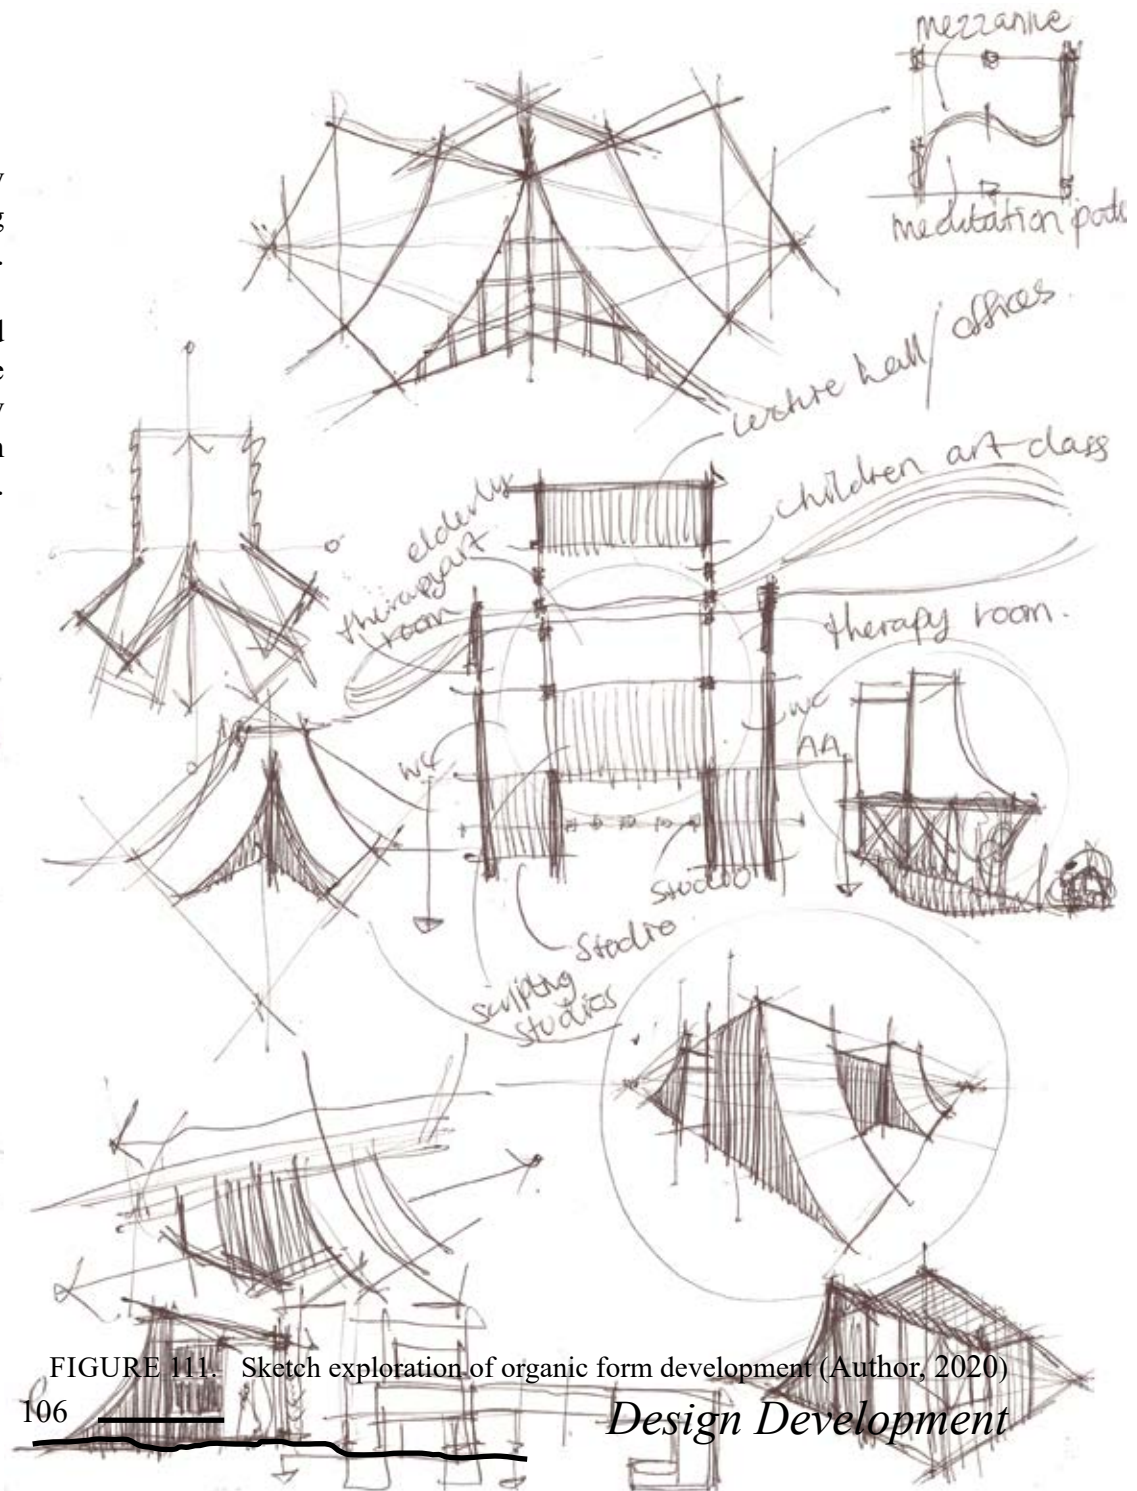 mezzanine
meditation
y
g
.
d
e
y
n
.
lecture hall / offices
children art class
elderly
therapy art
room
therapy room.
WC
WC
AA
Studio
Studio
Sculpting
Studios
FIGURE 111. Sketch exploration of organic form development (Author, 2020)
106
Design Development